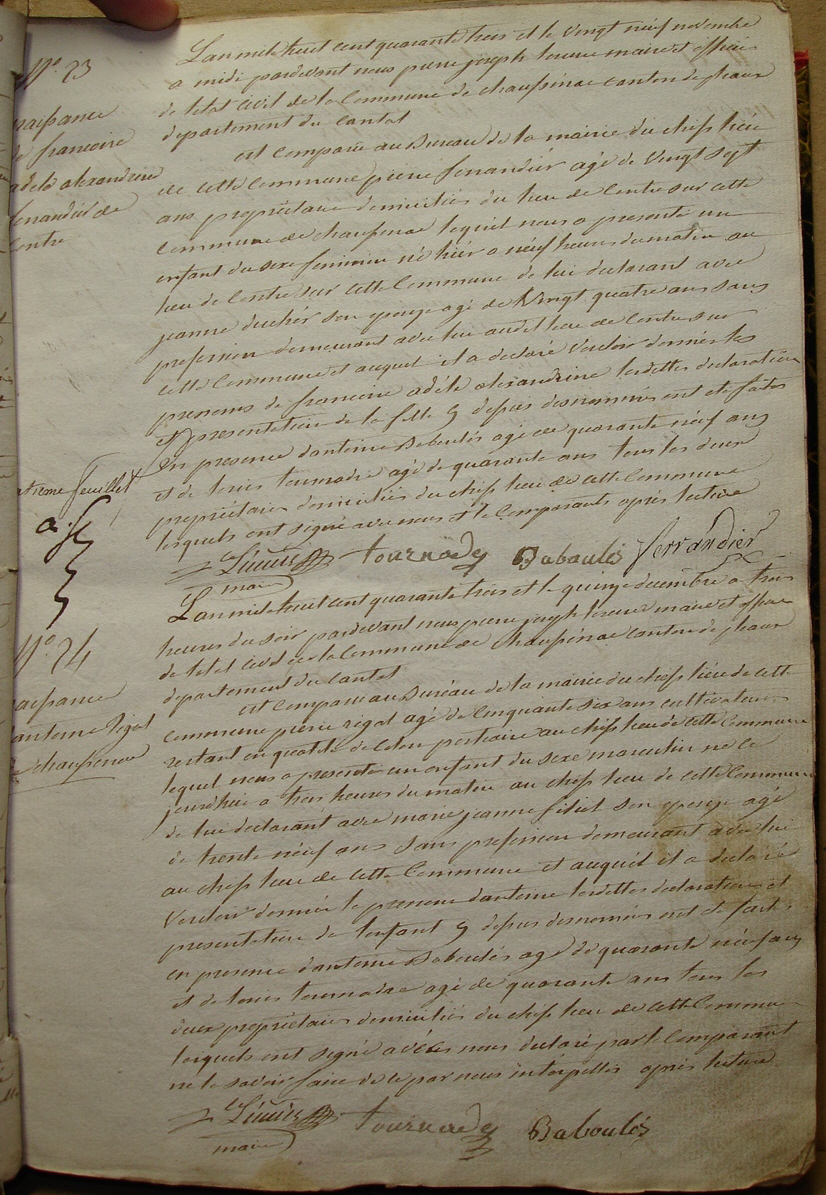 N°. 23
naissance
de francoise
adele alexandrine
ferrandier de
Contre
L'an mil huit cent quarante trois et le vingt neuf novembre
a midi pardevant nous pierre joseph maire et officier
de letat civil de la Commune de chaussenac canton de pleaux
departement du Cantal
est Comparu au Bureau de la mairie du chef lieu
de cette Commune pierre ferrandier agé de Vingt sept
ans proprietaire domicilié du lieu de Contre sur cette
Commune de chaussenac lequel nous a presenté un
enfant du sexe feminin né hier a neuf heures du matin au
lieu de Contre sur cette Commune de lui declarant avec
jeanne son epouse agé de Vingt quatre ans sans
profession demeurant avec lui audit lieu de Contre sur
cette Commune et auquel il a declaré Vouloir donner les
prenoms de francoise adéle alexandrine lesdittes declaration
et presentation de la fille depuis desnommés ont été faites
En presence d'antoine Baboulés agé de quarante neuf ans
et de louis tournadre agé de quarante ans tous les deux
proprietaires domiciliés du chef lieu de cette Commune
lesquels ont signé avec nous et le Comparants après lecture
tournade Baboulés ferrandier
maire
feuillet
N°. 24
naissance
antoine rigal
chaussenac
L'an mil huit cent quarante trois et le quinze decembre a trois
heures du soir pardevant nous pierre joseph maire et officier
de letat civil de la Commune de Chaussenac canton de pleaux
departement du cantal
est Comparu au Bureau de la mairie du chef lieu de cette
Commune pierre rigal agé de Cinquante six ans cultivateur
restant en qualité de Colon partiaire au chef lieu de cette Commune
lequel nous a presenté un enfant du sexe masculin né ce
jourdhui a trois heures du matin au chef lieu de cette Commune
de lui declarant avec marie jeanne son epouse agé
de trente neuf ans sans profession demeurant avec lui
au chef lieu de cette Commune et auquel il a declaré
Vouloir donner le prenom d'antoine lesdittes declaration et
presentation de lenfant depuis desnommés ont été faites
en presence d'antoine Baboulés agé de quarante neuf ans
et de louis tournadre agé de quarante ans tous les
deux proprietaires domiciliés du chef lieu de cette Commune
lesquels ont signé avec nous declaré par le Comparant
ne le savoir faire de ce par nous interpellé après lecture
tournade Baboulés
maire